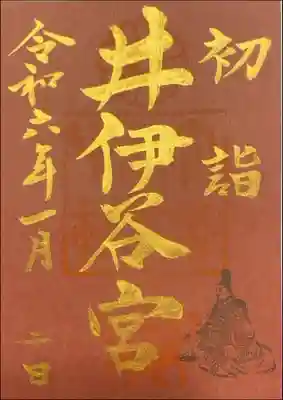 初詣
井伊谷宮
令和六年一月二日